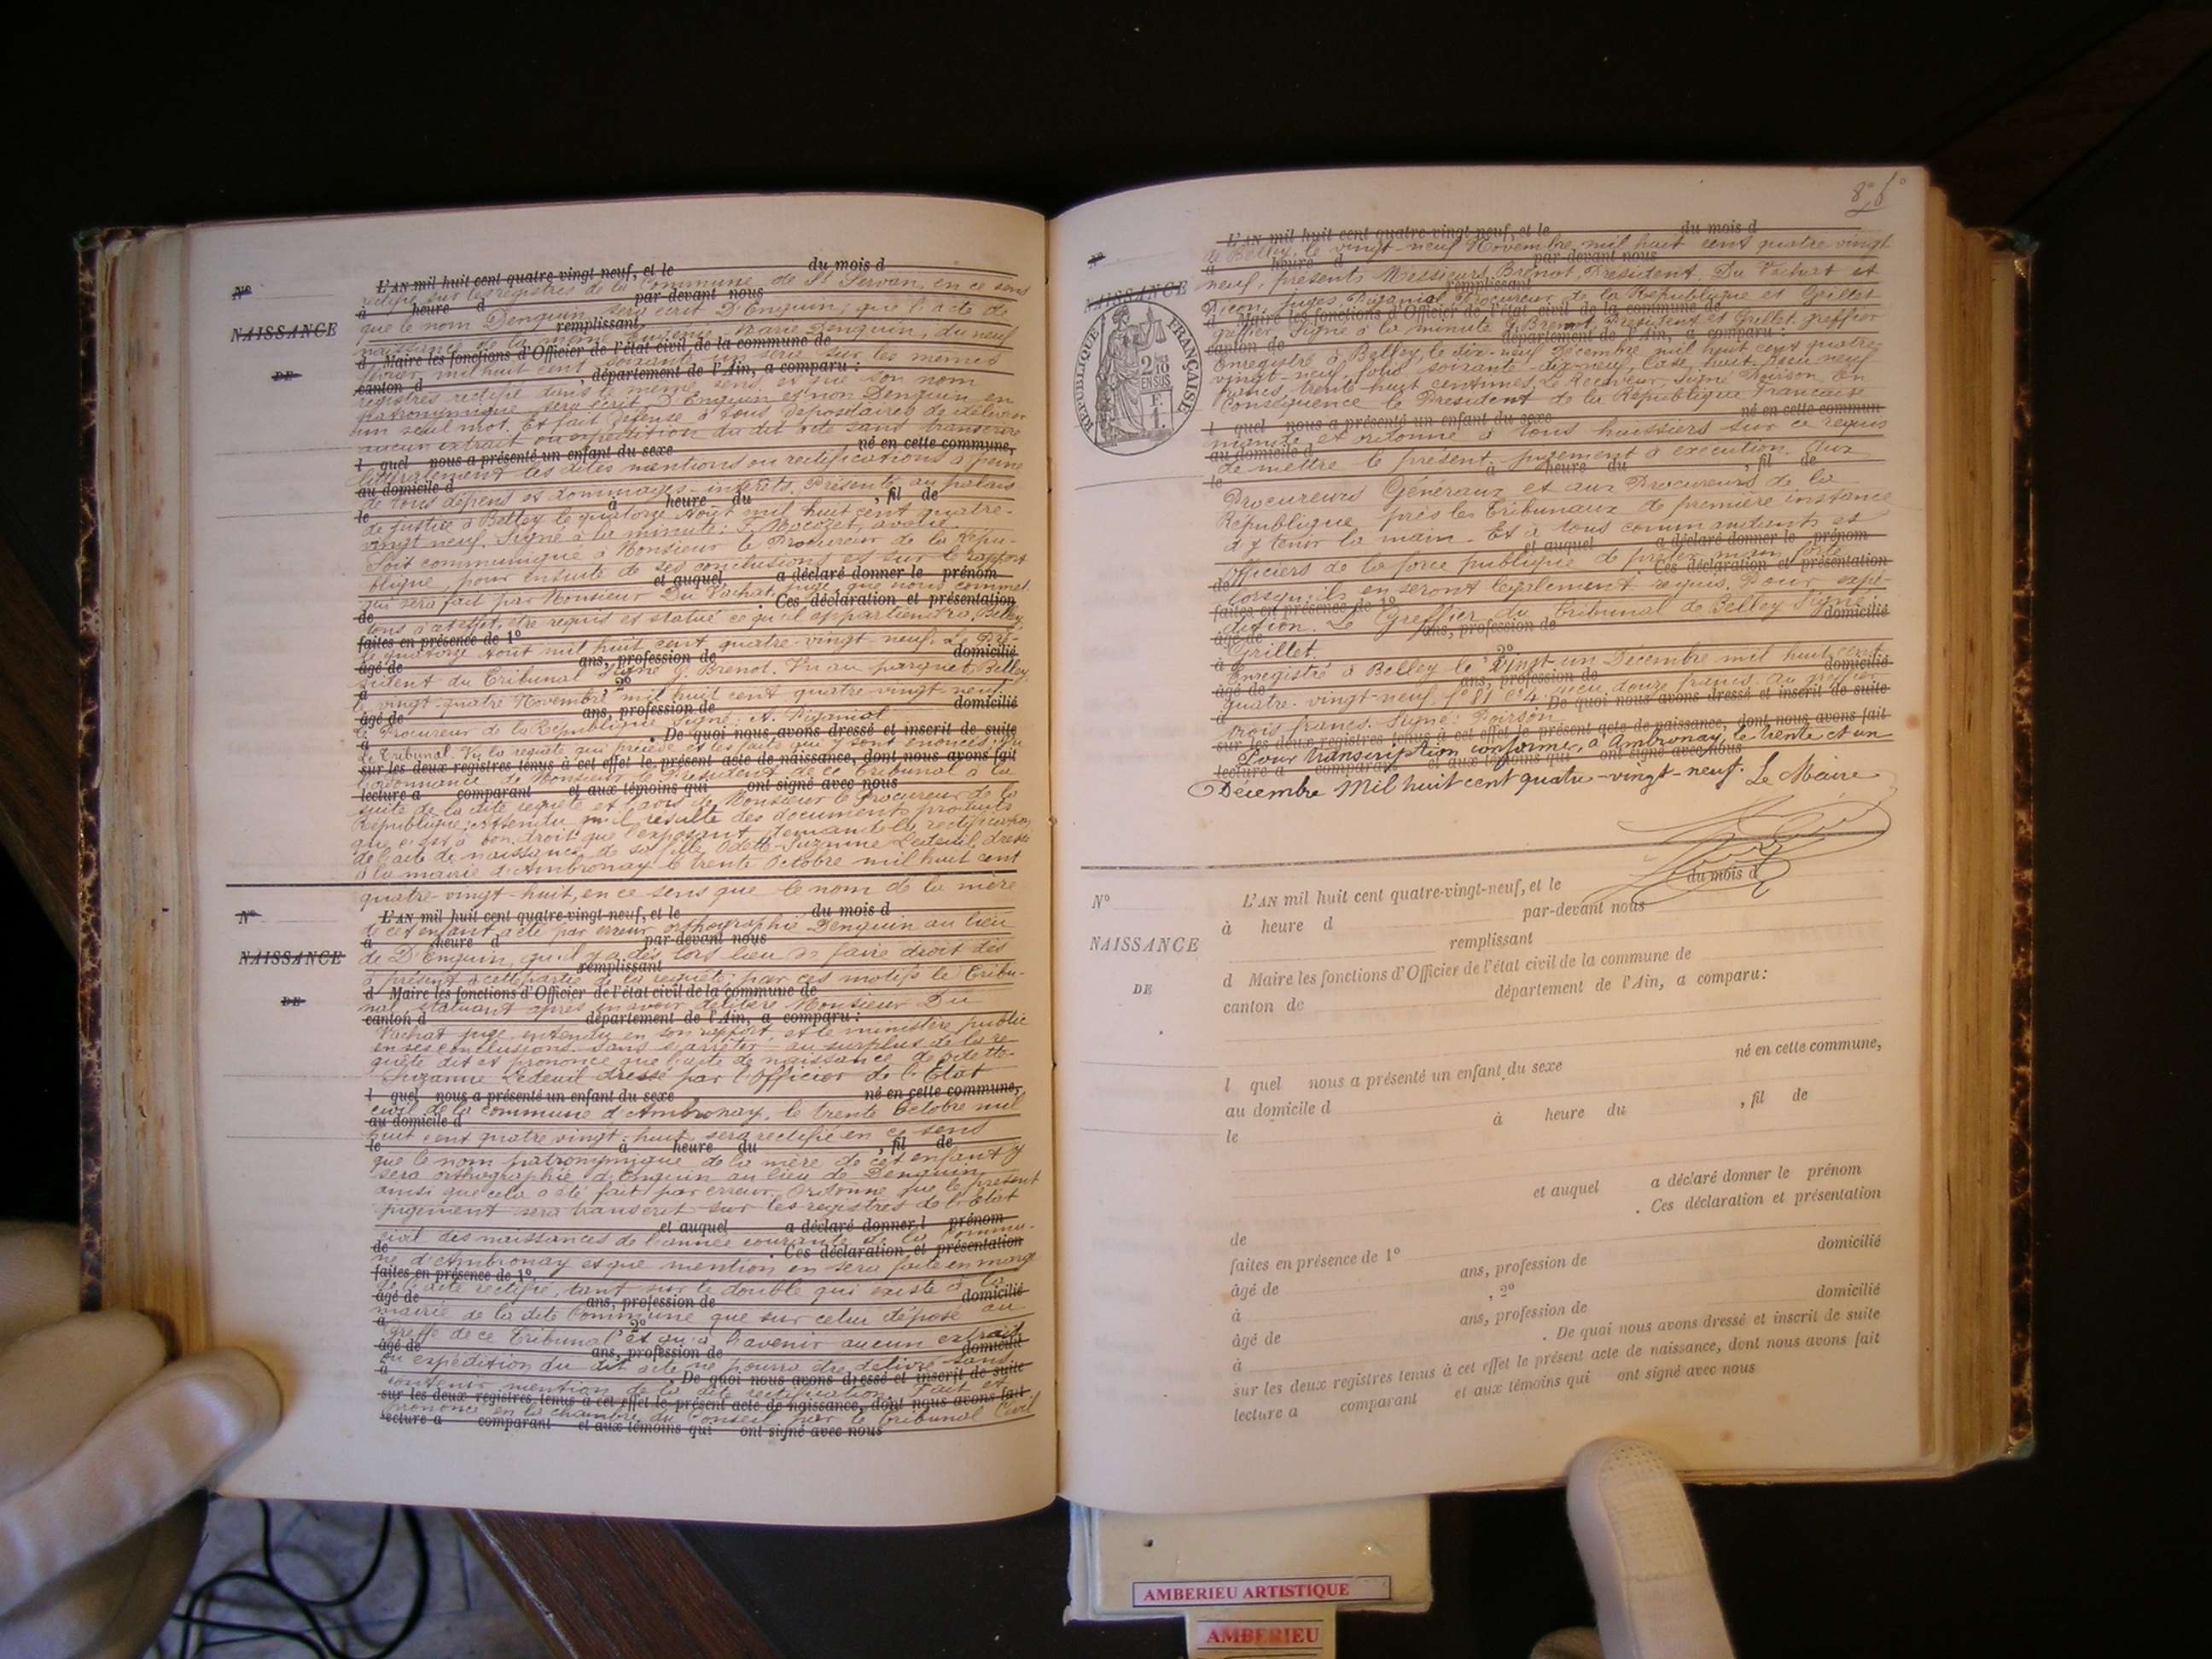 N° L'AN mil huit cent quatre-vingt-neuf, et le du mois d
rectifié sur les registres de la Commune de St Servan, en ce sens
à heure d par-devant nous
que le nom Denguin sera écrit D'Enguin, que l'acte de
NAISSANCE remplissant
naissance de la même Marie Denguin, du neuf
d Maire les fonctions d'Officier de l'état civil de la commune de
février mil huit cent soixante un sera sur les mêmes
DE canton d département de l'Ain, a comparu :
registres rectifié dans le même sens, et que son nom
patronymique sera écrit D'Enguin et non Denguin en
un seul mot. Et fait défense à tous dépositaires de délivrer
aucun extrait ou expédition du dit acte sans transcrire
l quel nous a présenté un enfant du sexe né en cette commune,
littéralement les dites mentions ou rectifications à peine
au domicile d
de tous dépens et dommages-intérêts. Présenté au palais
le à heure du , fil de
de justice à Belley le quatorze Août mil huit cent quatre-
vingt neuf. Signé à la minute : avoué.
Soit communiqué à Monsieur le Procureur de la Répu-
blique, pour ensuite de ses conclusions et sur le rapport
et auquel a déclaré donner le prénom
qui sera fait par Monsieur Du Vachat, juge, que nous commet-
de . Ces déclaration et présentation
tons à cet effet, être requis et statué ce qu'il appartiendra. Belley,
faites en présence de 1°
le quatorze Août mil huit cent quatre-vingt-neuf. Le Pré-
âgé de ans, profession de domicilié
sident du Tribunal Signé G. Brenot. Vu au parquet Belley,
à 2°
le vingt-quatre Novembre mil huit cent quatre-vingt-neuf.
âgé de ans, profession de domicilié
le Procureur de la République Signé : A.
à . De quoi nous avons dressé et inscrit de suite
Le Tribunal Vu la requête qui précède et les faits qui y sont énoncés; Vu
sur les deux registres tenus à cet effet le présent acte de naissance, dont nous avons fait
l'ordonnance de Monsieur le Président de ce Tribunal à la
lecture a comparant et aux témoins qui ont signé avec nous
suite de la dite requête et l'avis de Monsieur le Procureur de la
République; Attendu qu'il résulte des documents produits
que c'est à bon droit que l'exposant demande la rectification
de l'acte de naissance de sa fille Odette-Suzanne Ledeuil, dressé
à la mairie d'Ambronay le trente Octobre mil huit cent
quatre vingt-huit, en ce sens que le nom de la mère
N° L'AN mil huit cent quatre-vingt-neuf, et le du mois d
de cet enfant a été par erreur orthographié Denguin au lieu
à heure d par-devant nous
de D'Enguin, qu'il y a dès lors lieu de faire droit dès
NAISSANCE remplissant
à présent à cette partie de la requête; par ces motifs le Tribu-
d Maire les fonctions d'Officier de l'état civil de la commune de
nal, statuant après en avoir délibéré Monsieur Du
DE canton d département de l'Ain, a comparu :
Vachat juge entendu en son rapport, et le ministère public
en ses conclusions. Sans s'arrêter au surplus de la re-
quête dit et prononce que l'acte de naissance de Odette-
Suzanne Ledeuil dressé par l'Officier de l'Etat
l quel nous a présenté un enfant du sexe né en cette commune,
civil de la commune d'Ambronay, le trente Octobre mil
au domicile d
huit cent quatre vingt-huit sera rectifié en ce sens
le à heure du , fil de
que le nom patronymique de la mère de cet enfant y
sera orthographié d'Enguin au lieu de Denguin
ainsi que cela a été fait par erreur. Ordonne que le présent
jugement sera transcrit sur les registres de l'Etat
et auquel a déclaré donner l prénom
civil des naissances de l'année courante de la Commu-
de . Ces déclaration et présentation
ne d'Ambronay et que mention en sera faite en marge
faites en présence de 1°
de l'acte rectifié, tant sur le double qui existe à la
âgé de ans, profession de domicilié
mairie de la dite Commune que sur celui déposé au
à 2°
Greffe de ce Tribunal et qu'à l'avenir aucun extrait
âgé de ans, profession de domicilié
ou expédition du dit acte ne pourra être délivré sans
à . De quoi nous avons dressé et inscrit de suite
contenir mention de la dite rectification. Fait et
sur les deux registres tenus à cet effet le présent acte de naissance, dont nous avons fait
prononcé en la chambre du Conseil par le Tribunal Civil
lecture a comparant et aux témoins qui ont signé avec nous
N° L'AN mil huit cent quatre-vingt-neuf, et le du mois d
de Belley, le vingt-neuf Novembre, mil huit cent quatre vingt
à heure d par-devant nous
neuf, présents Messieurs Brenot, Président. Du Vachat et
NAISSANCE remplissant
juges, Procureur de la République et Grillet
d Maire les fonctions d'Officier de l'état civil de la commune de
greffier. Signé à la minute G. Brenot, Président et Grillet, greffier
canton de département de l'Ain, a comparu :
Enregistré à Belley, le dix-neuf Décembre mil huit cent quatre-
vingt-neuf, folio soixante-dix-neuf, case huit. Reçu neuf
francs trente-huit centimes. Le Receveur, Signé Poirson. En
conséquence le Président de la République Française
l quel nous a présenté un enfant du sexe né en cette commun
mande et ordonne à tous huissiers sur ce requis
au domicile d
de mettre le présent jugement à exécution. Aux
le à heure du , fil de
Procureurs Généraux et aux Procureurs de la
République près les Tribunaux de première instance
d'y tenir la main. Et à tous commandants et
et auquel a déclaré donner le prénom
officiers de la force publique de prêter main forte
de Ces déclaration et présentation
lorsqu'ils en seront légalement requis. Pour expé-
faites en présence de 1°
dition. Le Greffier du Tribunal de Belley Signé :
âgé de ans, profession de domicilié
Grillet.
à 2°
Enregistré à Belley le vingt-un Décembre mil huit cent
âgé de ans, profession de domicilié
quatre-vingt-neuf, f° 81 c° 4. reçu douze francs. au greffier
à De quoi nous avons dressé et inscrit de suite
trois francs. Signé : Poirson
sur les deux registres tenus à cet effet le présent acte de naissance, dont nous avons fait
Pour transcription conforme, à Ambronay, le trente et un
lecture a comparant et aux témoins qui ont signé avec nous
Décembre Mil huit cent quatre-vingt-neuf. Le Maire
RÉPUBLIQUE FRANÇAISE
2/10
EN SUS
F.
1.
N° L'AN mil huit cent quatre-vingt-neuf, et le du mois d
à heure d par-devant nous
NAISSANCE remplissant
d Maire les fonctions d'Officier de l'état civil de la commune de
DE canton de département de l'Ain, a comparu :
l quel nous a présenté un enfant du sexe né en cette commune,
au domicile d
le à heure du , fil de
et auquel a déclaré donner le prénom
de . Ces déclaration et présentation
faites en présence de 1°
âgé de ans, profession de domicilié
à , 2°
âgé de ans, profession de domicilié
à . De quoi nous avons dressé et inscrit de suite
sur les deux registres tenus à cet effet le présent acte de naissance, dont nous avons fait
lecture a comparant et aux témoins qui ont signé avec nous
AMBERIEU ARTISTIQUE
AMBERIEU